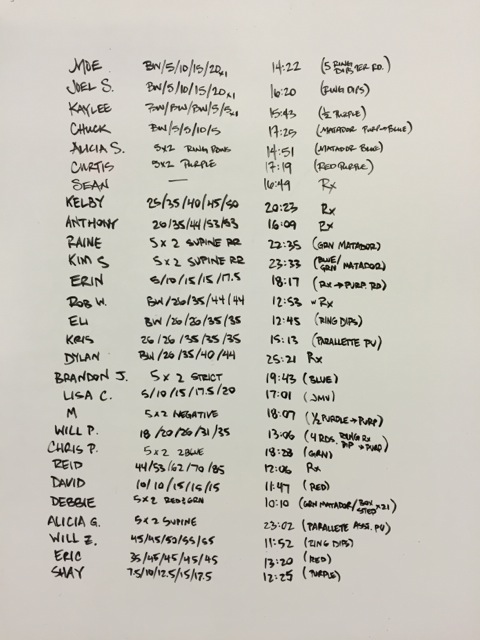 MOE BW/5/10/15/20x1 14:22 (5 RING DIPS PER RD.)
JOEL S. BW/5/10/15/20x1 16:20 (RING DIPS)
KAYLEE BW/BW/BW/5/5x1 15:43 (1/2 PURPLE)
CHUCK BW/5/5/10/5 17:25 (MATADOR PURP→BLUE)
ALICIA S. 5x2 RING ROWS 14:51 (MATADOR BLUE)
CURTIS 5x2 PURPLE 17:19 (RED PURPLE)
SEAN — 16:49 Rx
KELBY 25/35/40/45/50 20:23 Rx
ANTHONY 26/35/44/53/53 16:09 Rx
RAINE 5 x 2 SUPINE RR 22:35 (GRN MATADOR)
KIM S 5 x 2 SUPINE RR 23:33 (BLUE/GRN MATADOR)
ERIN 5/10/15/15/17.5 18:17 (Rx → PURP. RD)
ROB W. BW/26/35/44/44 12:53 Rx
ELI BW/26/26/35/35 12:45 (RING DIPS)
KRIS 26/26/35/35/35 15:13 (PARALLETTE PU)
DYLAN BW/26/35/40/44 25:21 Rx
BRANDON J. 5 x 2 STRICT 19:43 (BLUE)
LISA C. 5/10/15/17.5/20 17:01 (JMV)
M 5x2 NEGATIVE 18:07 (1/2 PURPLE → PURP)
WILL P. 18/20/26/31/35 13:06 (4 RDS. RING RX DIP → PURP)
CHRIS P. 5x2 2BLUE 18:28 (GRN)
REID 44/53/62/70/85 12:06 Rx
DAVID 10/10/15/15/15 11:47 (RED)
DEBBIE 5x2 RED&GRN 10:10 (GRN MATADOR/BOX STEP x21)
ALICIA G. 5x2 SUPINE 23:02 (PARALLETE ASSI. PU)
WILL Z. 45/45/50/55/55 11:52 (RING DIPS)
ERIC 35/45/45/45/45 13:20 (RED)
SHAY 7.5/10/12.5/15/17.5 12:25 (PURPLE)